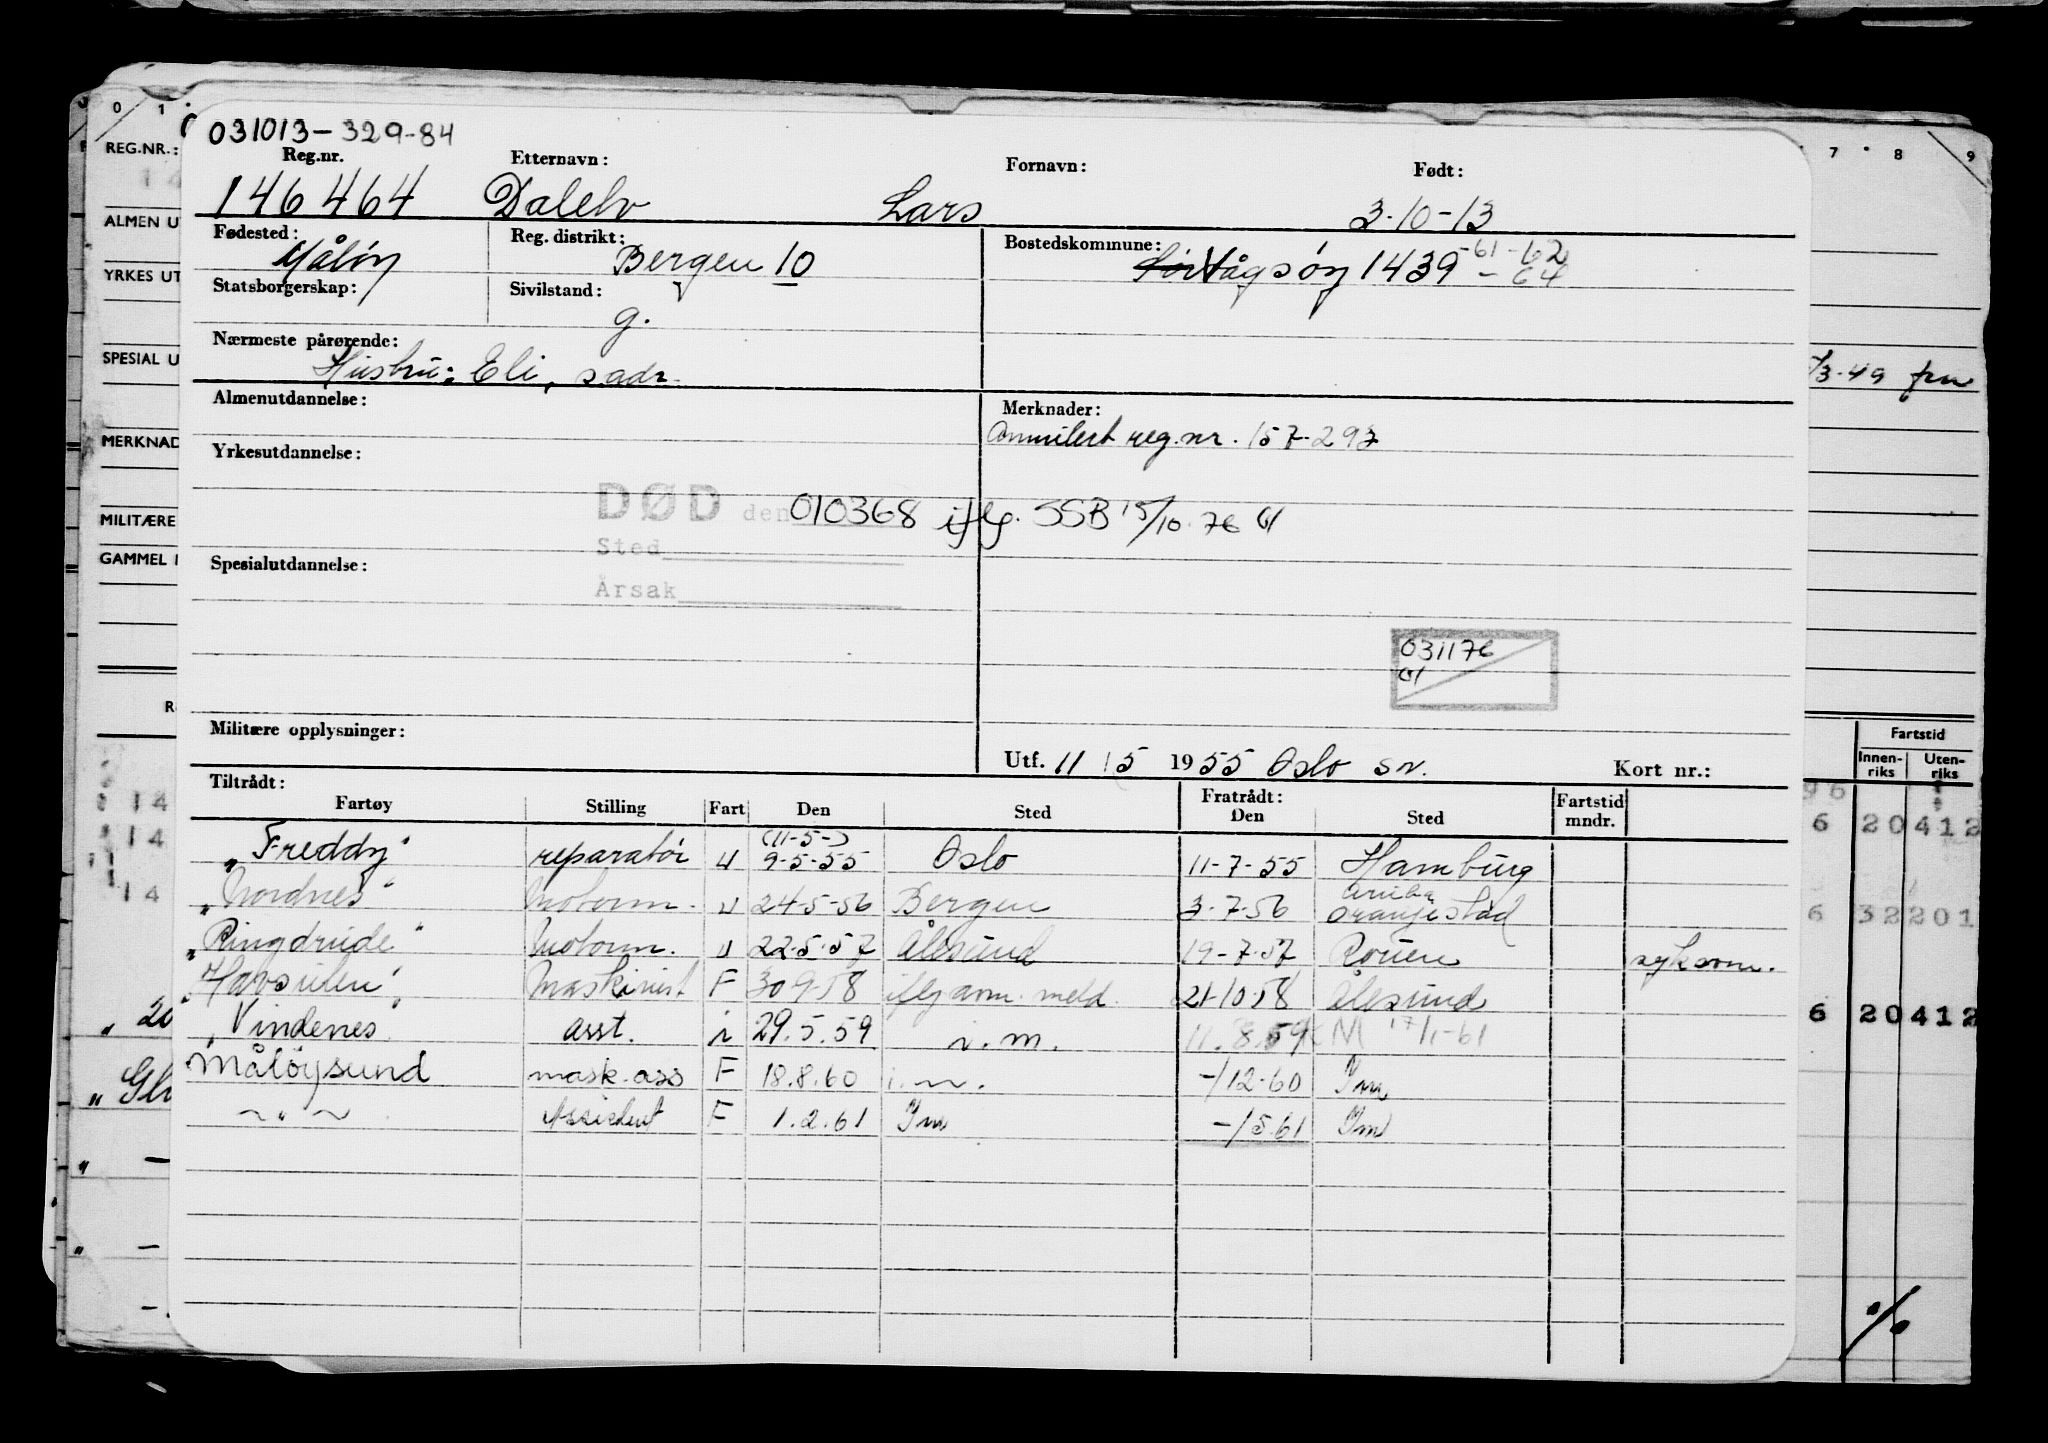 031013-329-84
Reg.nr. Etternavn: Fornavn: Født:
146464 Dalelv Lars 3-10-13
Fødested: Reg. distrikt: Bostedskommune:
Måløy Bergen 10 Vågsøy 1439 -61-62 -64
Statsborgerskap: Sivilstand:
g.
Nærmeste pårørende:
Hustru: Eli, s adr.
Almenutdannelse: Merknader:
Annulert reg.nr. 157-297
Yrkesutdannelse:
DØD den 010368 iflg. SSB 15/10.76
Sted
Spesialutdannelse:
Årsak
031176
Militære opplysninger:
Utf. 11/5 1955 Oslo sv. Kort nr.:
Tiltrådt: Fratrådt: Fartstid
Fartøy Stilling Fart Den Sted Den Sted mndr.
(11-5-)
"Freddy" reparatør u 9-5-55 Oslo 11-7-55 Hamburg
Aruba
"Nordnes" Motorm. u 24-5-56 Bergen 3.7.56 Oranjestad
"Ringdrude" Motorm. u 22.5.57 Ålesund 19-7.57 Rouen syk som.
Maskinist F 30 9 58 iflg arm. meld. 21-10-58 Ålesund
"Vindenes" asst. i 29.5.59 i.m. 11.8.59 17/1-61
Måløysund mask.ass F 18.8.60 i.m. -/12-60 Im
~ " ~ Assistent F 1.2.61 Im -/5.61 Im
0 1
REG.NR.:
14
ALMEN U
YRKES UT
SPESIAL U
MERKNAD
MILITÆRE
GAMMEL
R
14
14
14
" 20
" Gl
" -
" -
7 8 9
/3-49
Fartstid
Innen-riks Uten-riks
96
6 20412
6 32201
6 20412
%